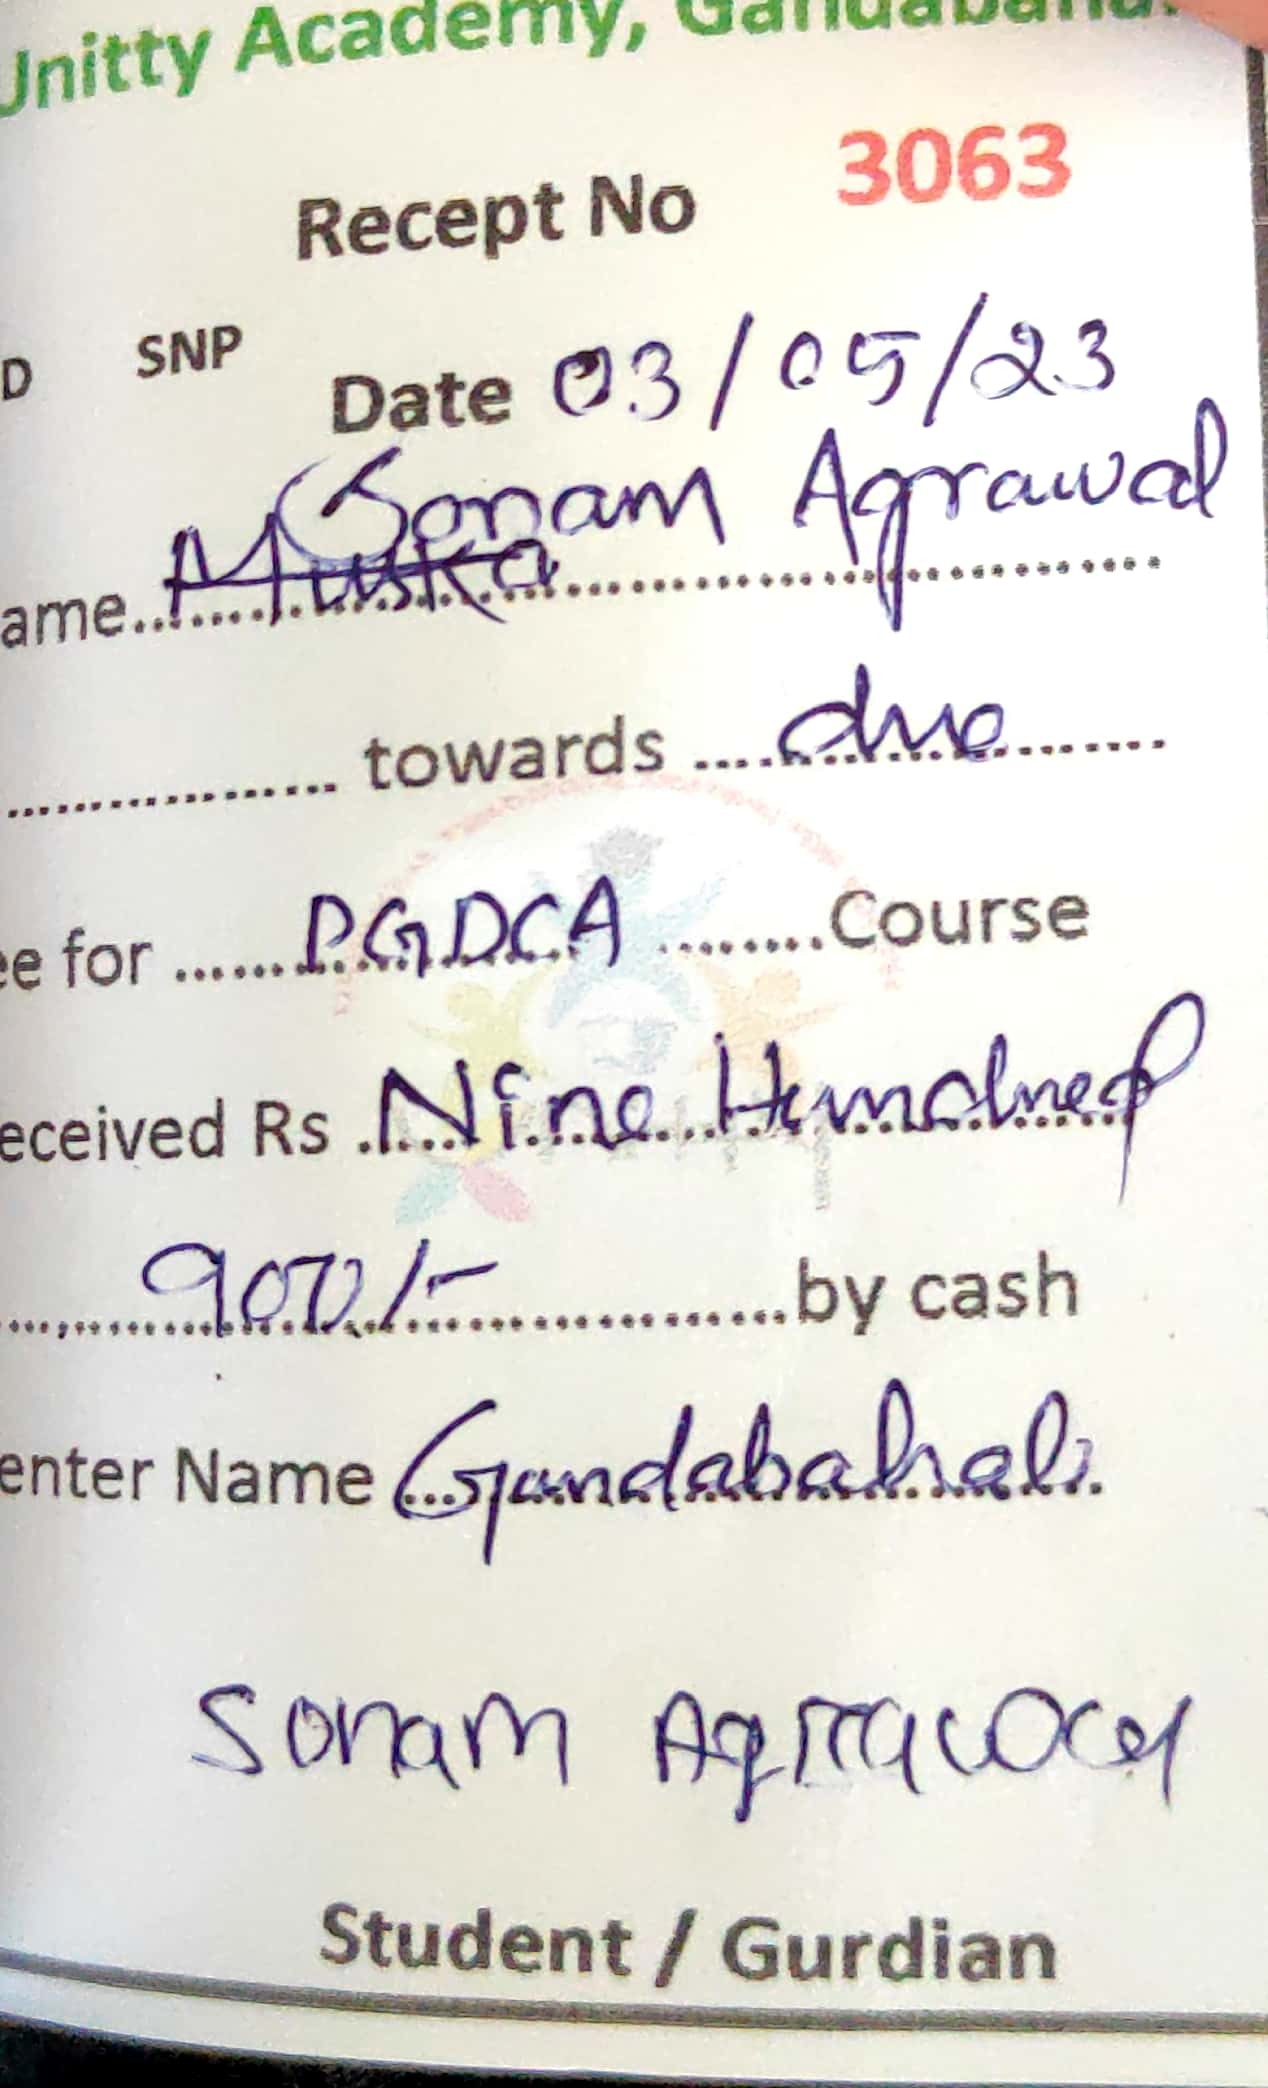 Unitty Academy, Gandabahal
Recept No 3063
D SNP
Date 03/05/23
Sonam Agrawal
ame.. Muska
towards .... due
ee for ...... PGDCA ........Course
eceived Rs .Nine Hundred
900/- by cash
enter Name Gandabahali
Sonam Agrawal
Student / Gurdian